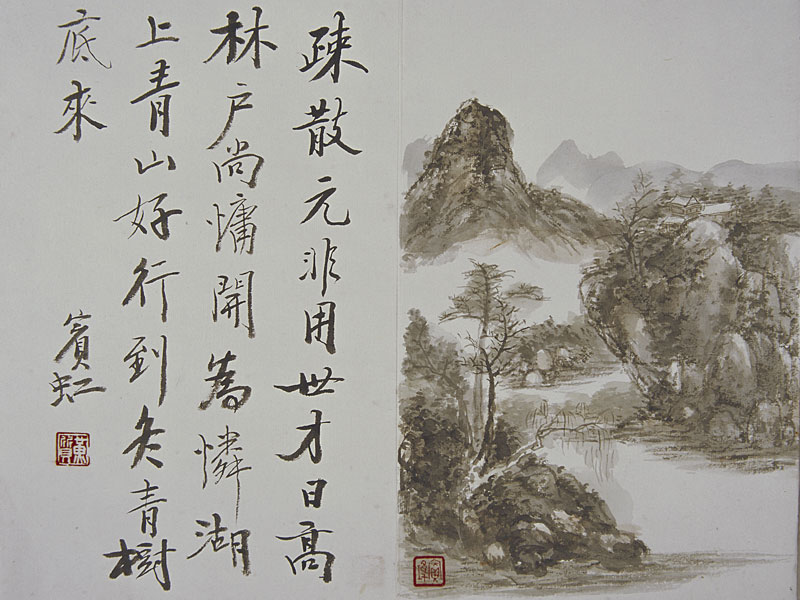 疎散元非用世才日高
林户尚慵開為憐湖
上青山好行到冬青樹
底來
賓虹